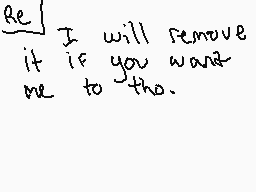 Re
I will remove
it if you want
me to tho.